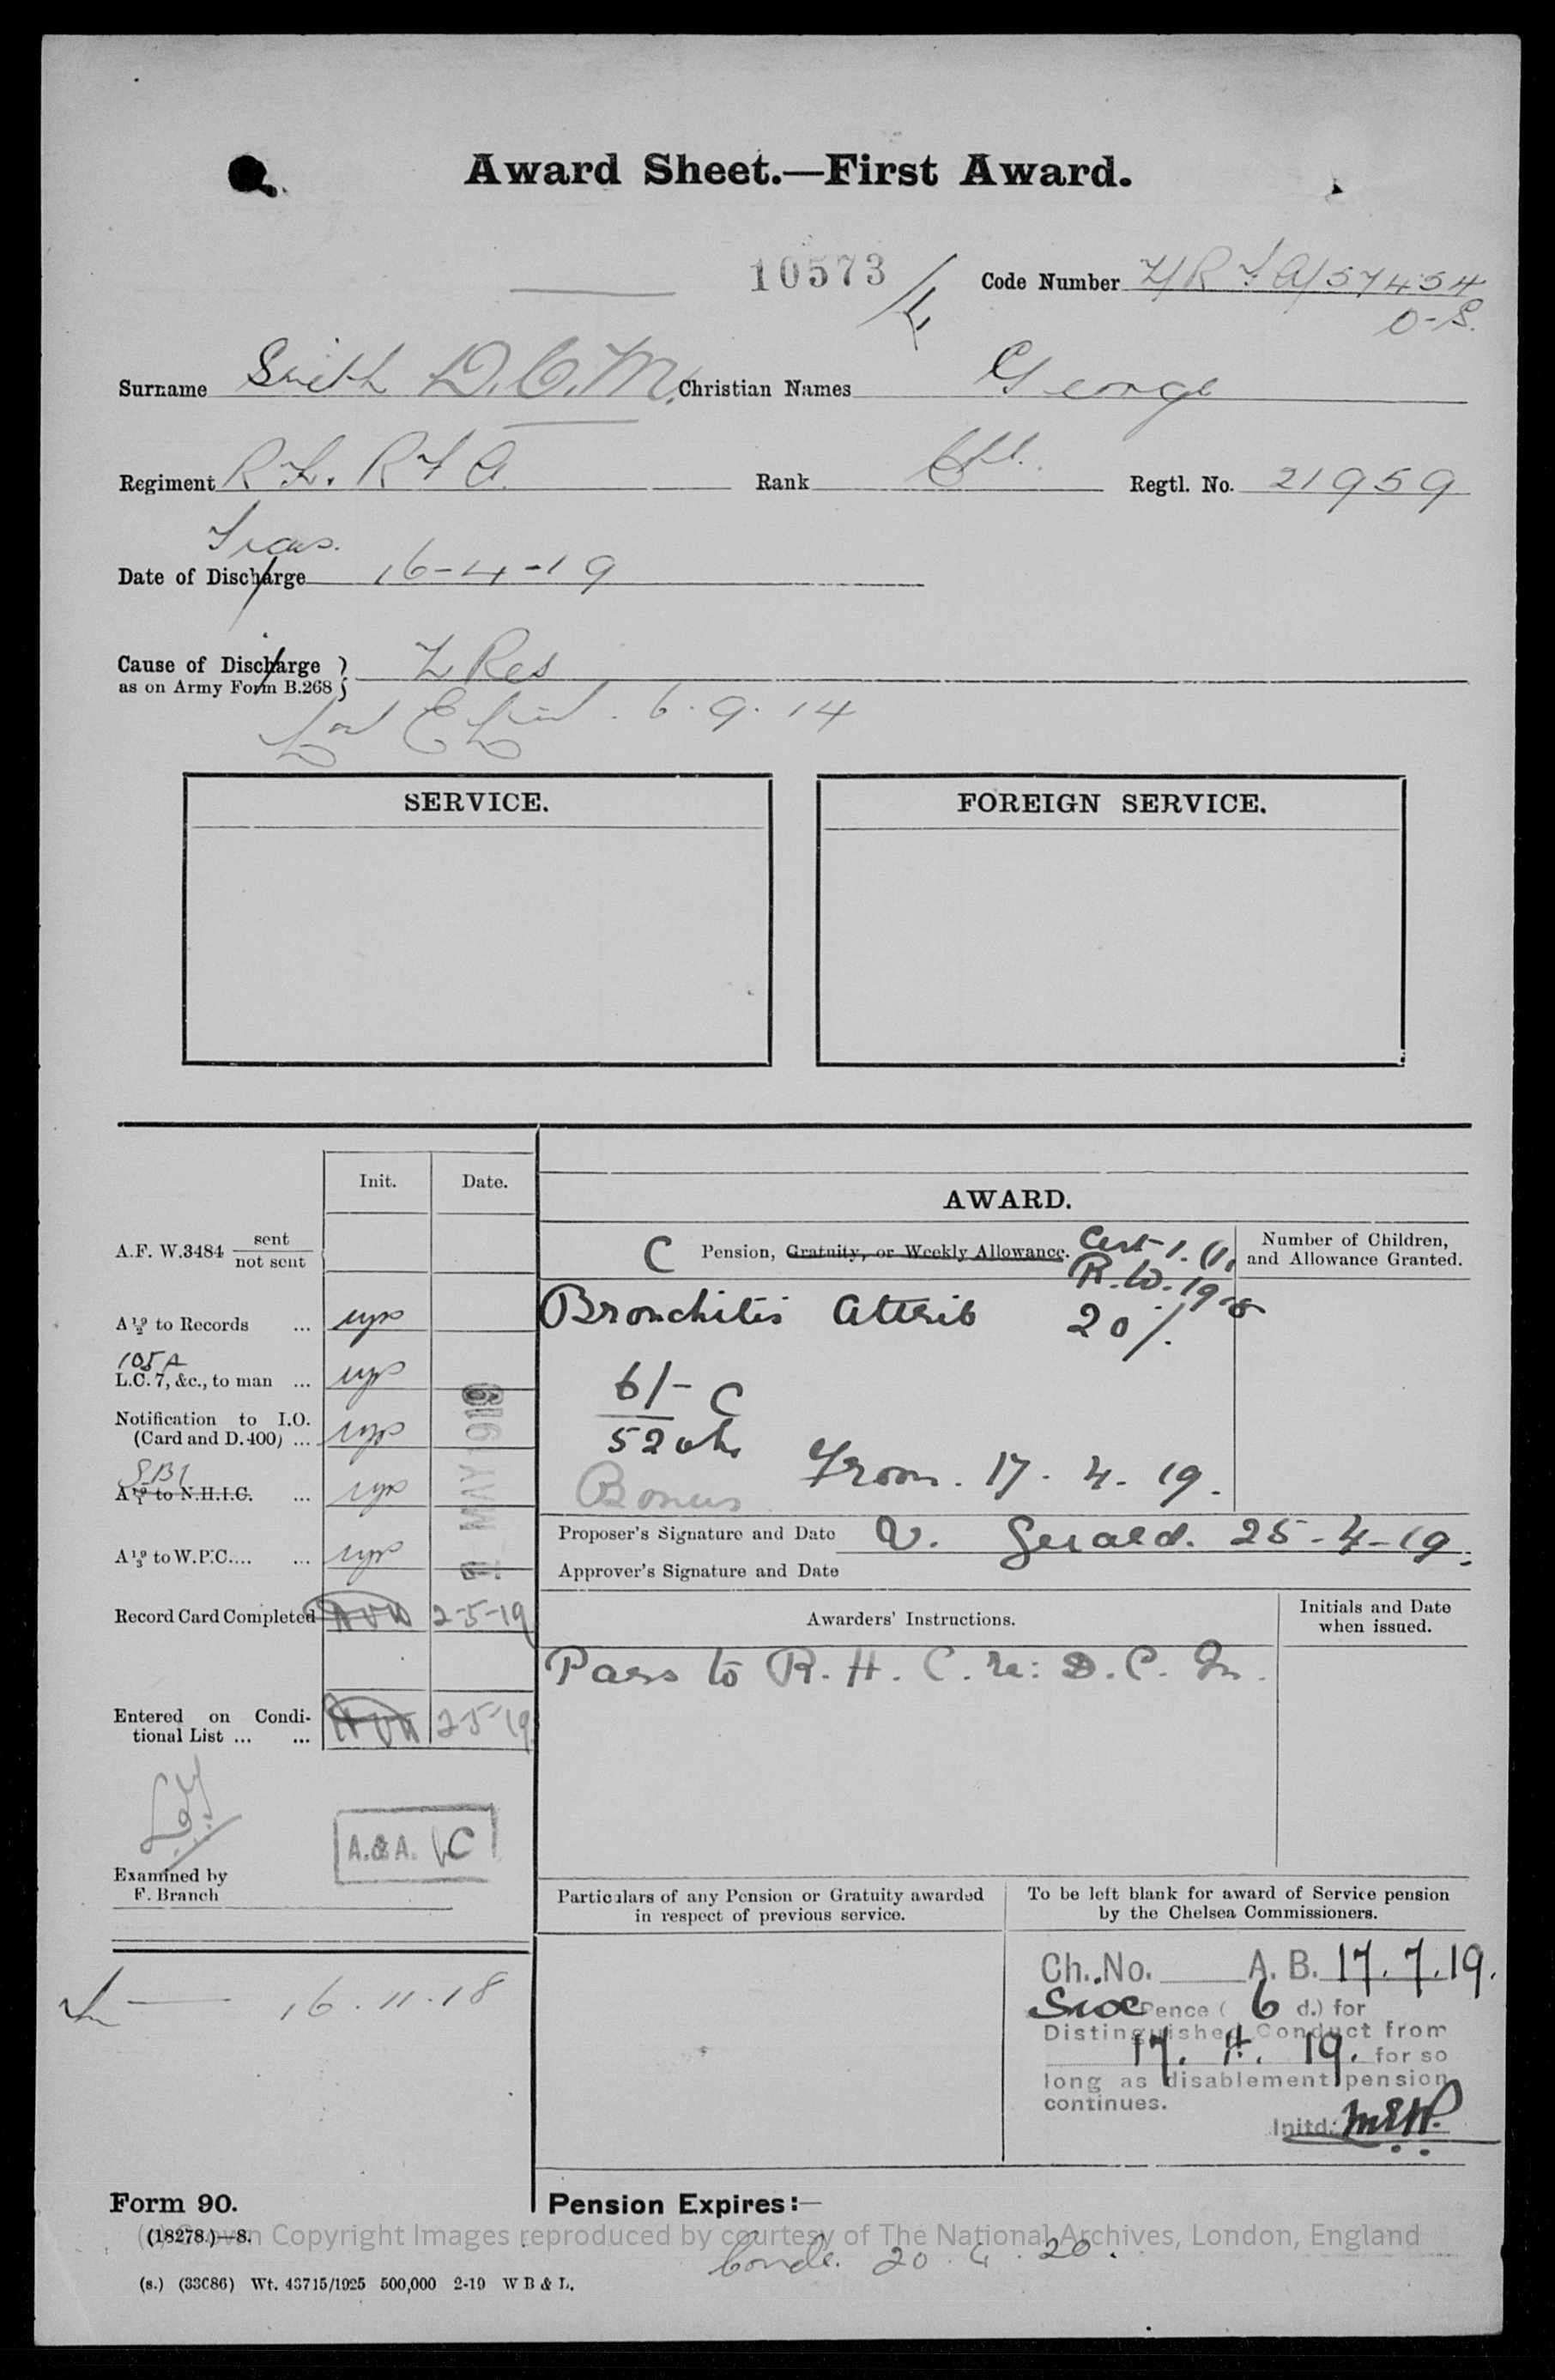 Award Sheet.—First Award.
10573
Code Number Z/RFA/57454
O-S.
Surname Smith D.C.M. Christian Names George
Regiment R.F.A. Rank Regtl. No. 21959
Trans.
Date of Discharge 16-4-19
Cause of Discharge } Z Res
as on Army Form B.268
6.9.14
SERVICE. FOREIGN SERVICE.
Init. Date.
AWARD.
A.F. W.3484 sent
not sent
C Pension, Gratuity, or Weekly Allowance. Cert 1.(1,
R.W. 1918
Number of Children,
and Allowance Granted.
Bronchitis Attrib 20%
A 19/2 to Records ...
105A
L.C. 7, &c., to man ...
6/- C
52 wks
Notification to I.O.
(Card and D.400) ...
MAY 1919
From. 17. 4. 19.
Bonus
SB1
A 19/1 to N.H.I.C. ...
Proposer's Signature and Date V. Gerald. 25-4-19.
A 19/3 to W.P.C.... ...
Approver's Signature and Date
Record Card Completed 2-5-19
Awarders' Instructions.
Initials and Date
when issued.
Pass to R.H.C. re: D.C.M.
Entered on Condi-
tional List ... ... 2-5-19
A.&A. C
Examined by
F. Branch
Particulars of any Pension or Gratuity awarded
in respect of previous service.
To be left blank for award of Service pension
by the Chelsea Commissioners.
16.11.18
Ch. No. A. B. 17.7.19.
Six Pence ( 6 d.) for
Distinguished Conduct from
17. 4. 19. for so
long as disablement pension
continues.
Initd:
Form 90.
Pension Expires:—
(18278.)—8.
(c) Crown Copyright Images reproduced by courtesy of The National Archives, London, England
Condl. 20.4.20.
(s.) (33C86) Wt. 43715/1925 500,000 2-19 W B & L.